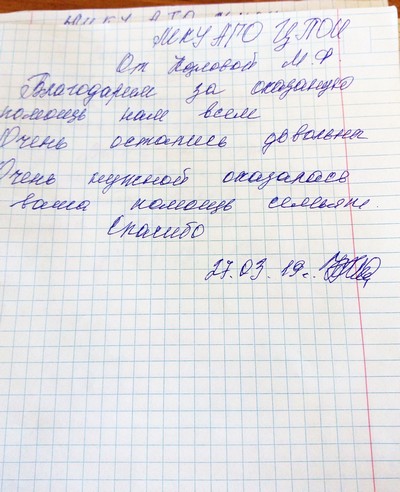 МКУ АГО ЦПОИ
От Козловой М Ф
Благодарим за оказаную
помощь нам всем
Очень остались довольны
Очень нужной оказалась
ваша помощь семьям.
Спасибо
27.03.19г.